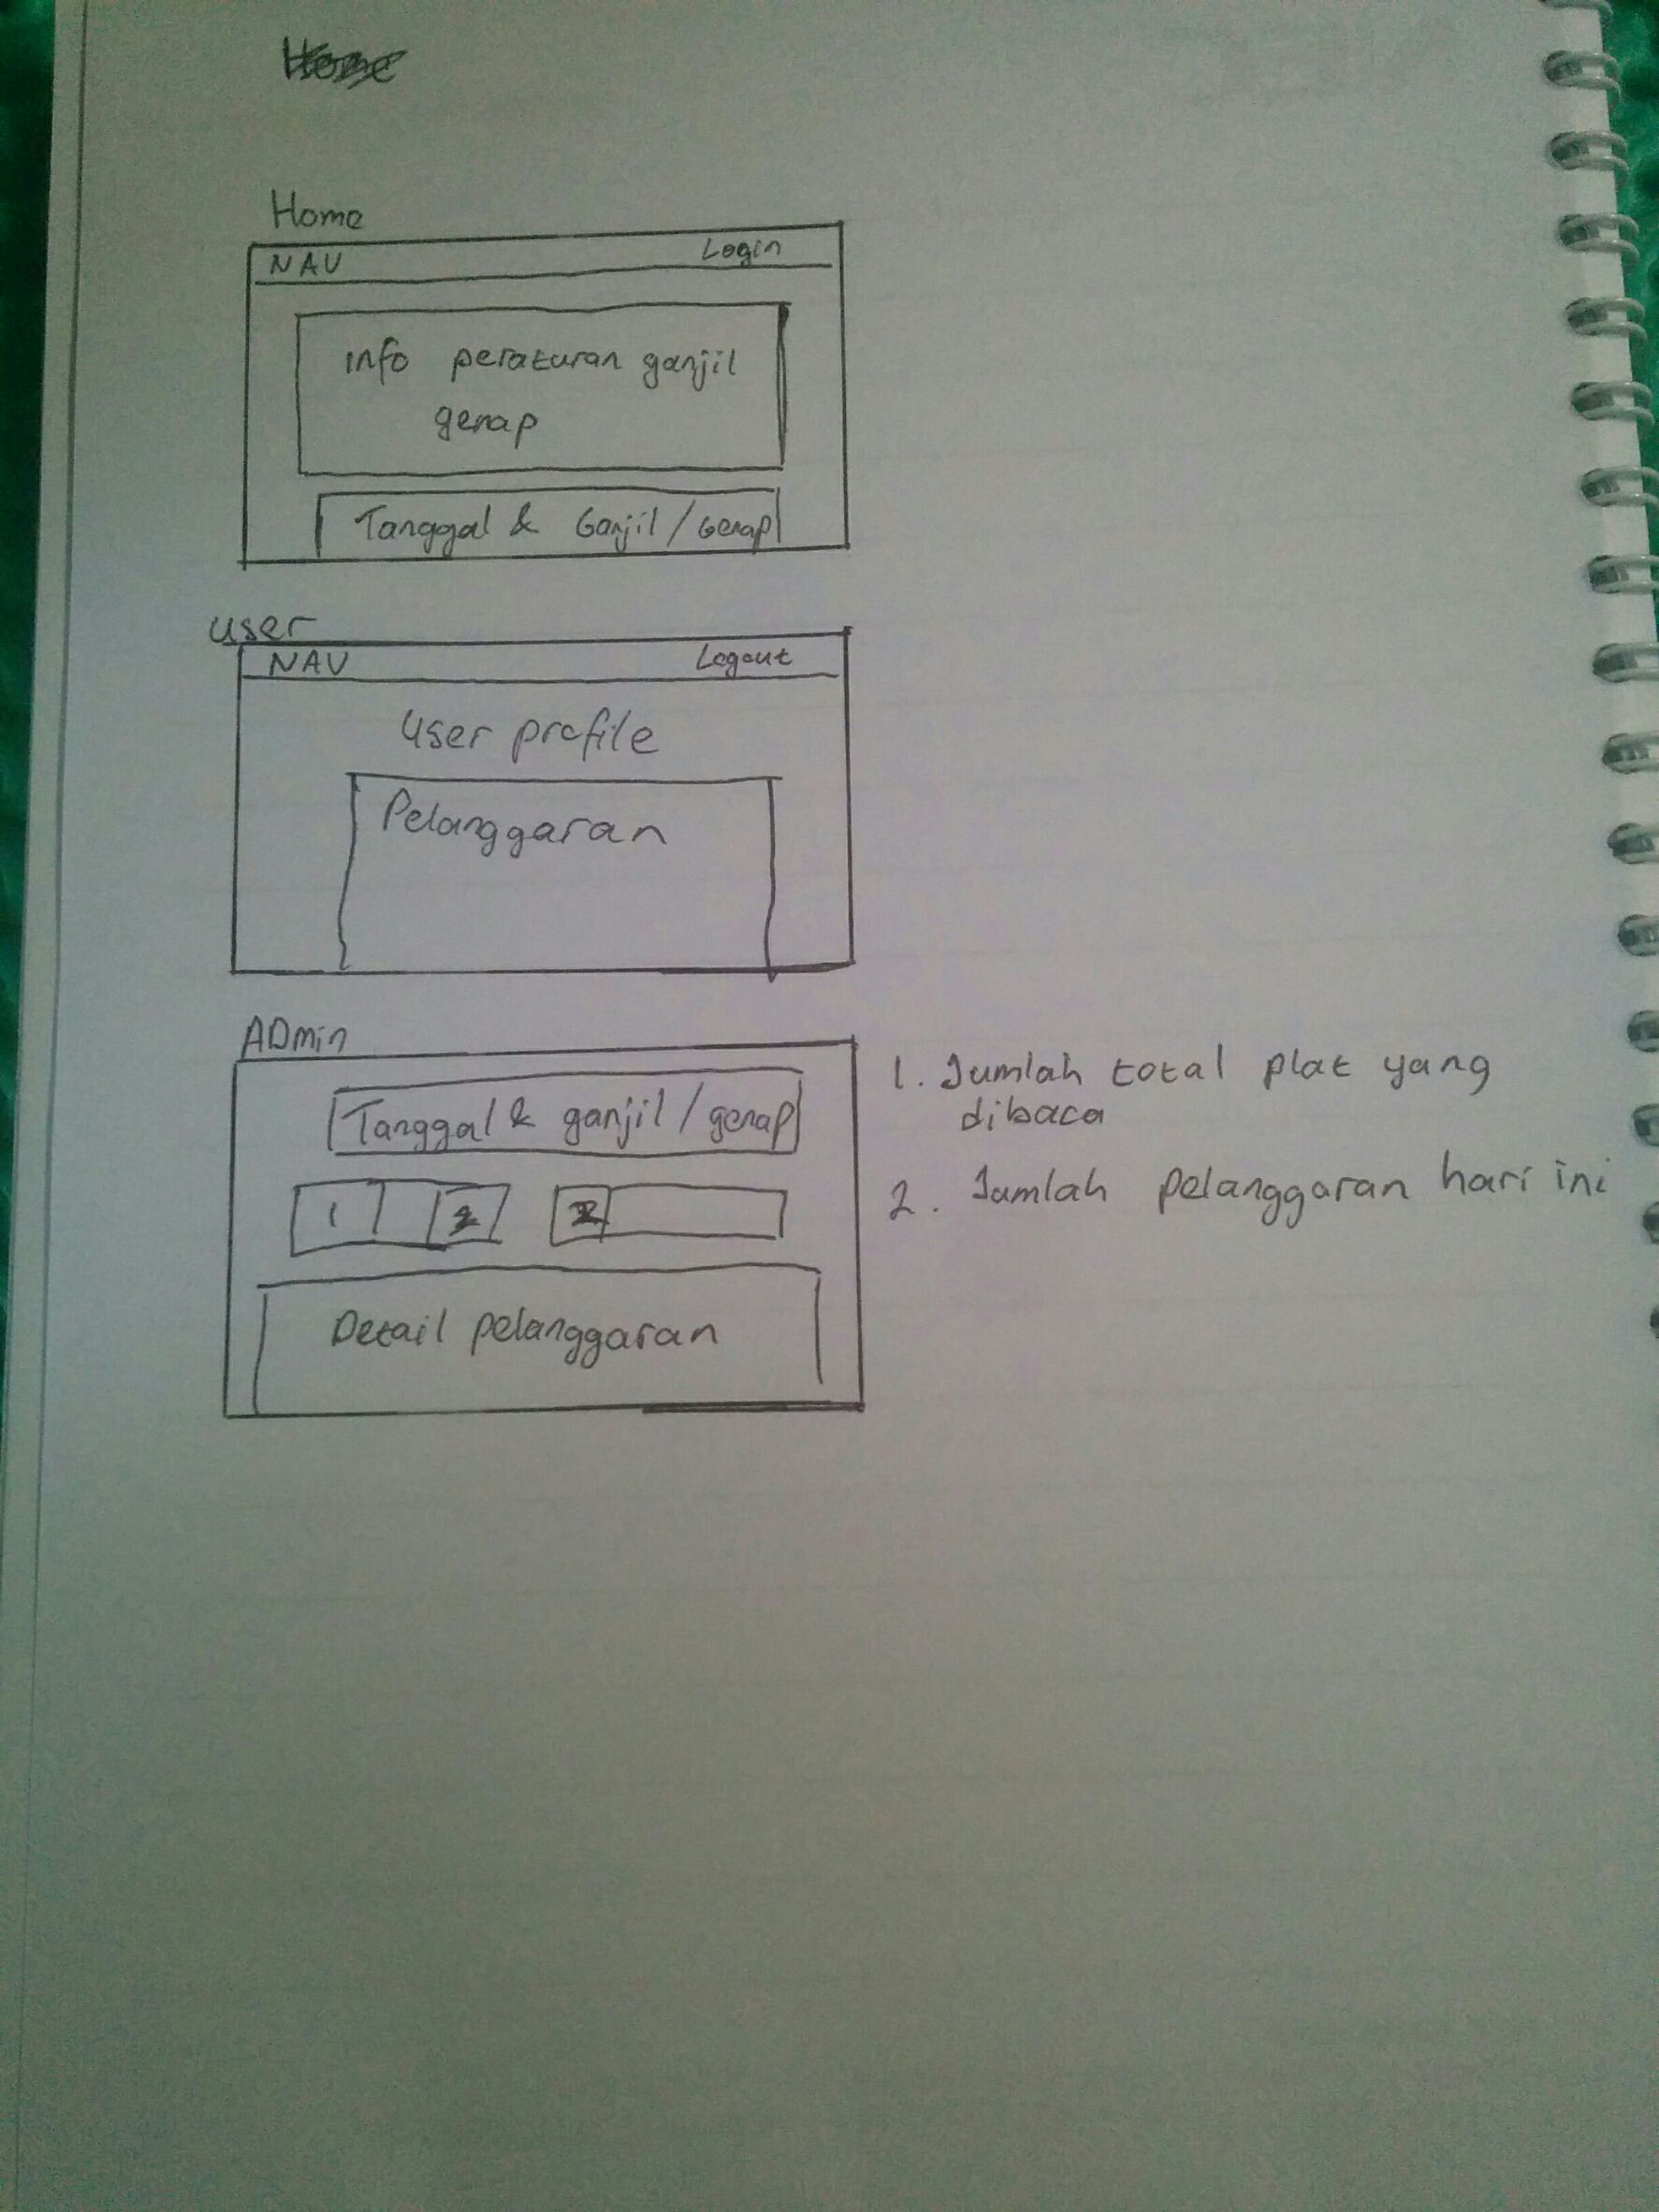 Home
Home
NAV Login
info peraturan ganjil
genap
Tanggal & Ganjil / Genap
user
NAV Logout
User profile
Pelanggaran
ADmin
Tanggal & ganjil / genap
1 2 2
Detail pelanggaran
1. Jumlah total plat yang
dibaca
2. Jumlah pelanggaran hari ini